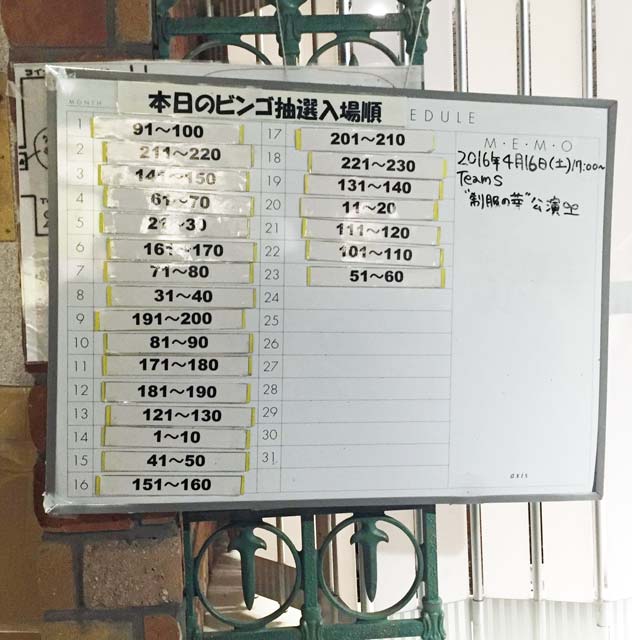 本日のビンゴ抽選入場順
MONTH
EDULE
1 91～100
2 211～220
3 141～150
4 61～70
5 21～30
6 161～170
7 71～80
8 31～40
9 191～200
10 81～90
11 171～180
12 181～190
13 121～130
14 1～10
15 41～50
16 151～160
17 201～210
18 221～230
19 131～140
20 11～20
21 111～120
22 101～110
23 51～60
24
25
26
27
28
29
30
31
M・E・M・O
2016年4月16日(土)17:00～
TeamS
"制服の芽"公演
axis